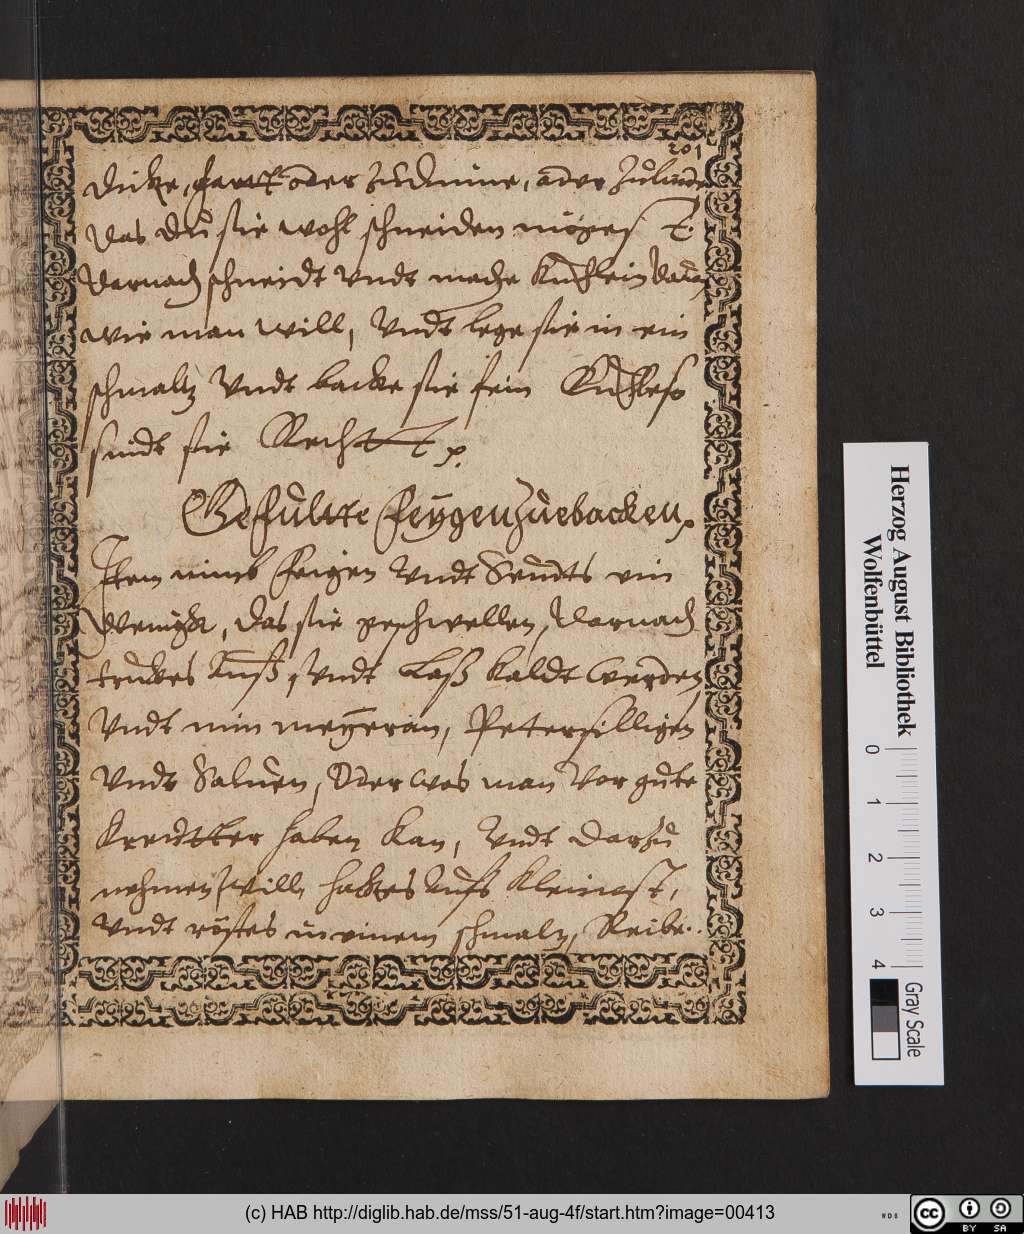 201
dicke, hartt oder zudünne, ader zulinde
das du sie wohl schneiden mögest
darnach schneidt vndt mache Küchlein daraus
wie man will, Vndt lege sie in ein
schmaltz Vndt backe sie fein
sindt sie Recht
Gefultte feygen zuebacken.
Item nimb feigen Vndt Seudts ein
Wenigk, das sie geschwellen, darnach
truckes Auß, Vndt Laß kaldt werden,
Vndt nim meyeran, Petersilligen
Vndt Saluen, Oder was man Vor gute
Kreutter haben kan, Vndt darzu
nehmen will, hackes Aufs kleinest,
Vndt röstes in einem schmalz, Reibe
Herzog August Bibliothek
Wolfenbüttel
0 1 2 3 4
Gray Scale
(c) HAB http://diglib.hab.de/mss/51-aug-4f/start.htm?image=00413
WDB
cc BY SA